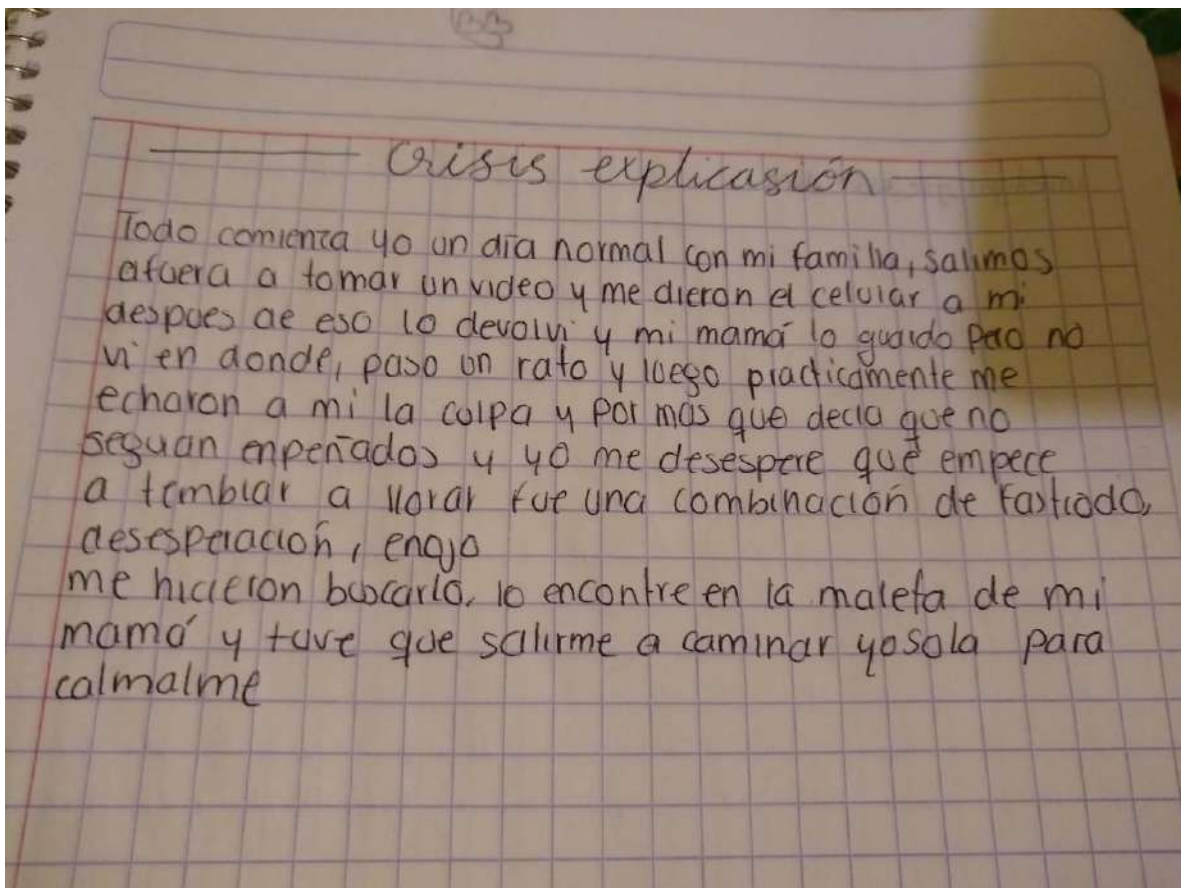 Crisis explicasión
Todo comienza yo un día normal con mi familia, salimos
afuera a tomar un video y me dieron el celular a mi
despues de eso lo devolvi y mi mamá lo guardo pero no
vi en donde, paso un rato y luego practicamente me
echaron a mi la culpa y por mas que decia que no
seguan enpeñados y yo me desespere que empece
a temblar a llorar fue una combinación de fastiodo,
desesperación, enojo
me hicieron buscarlo, lo encontre en la maleta de mi
mamá y tuve que salirme a caminar yo sola para
calmalme